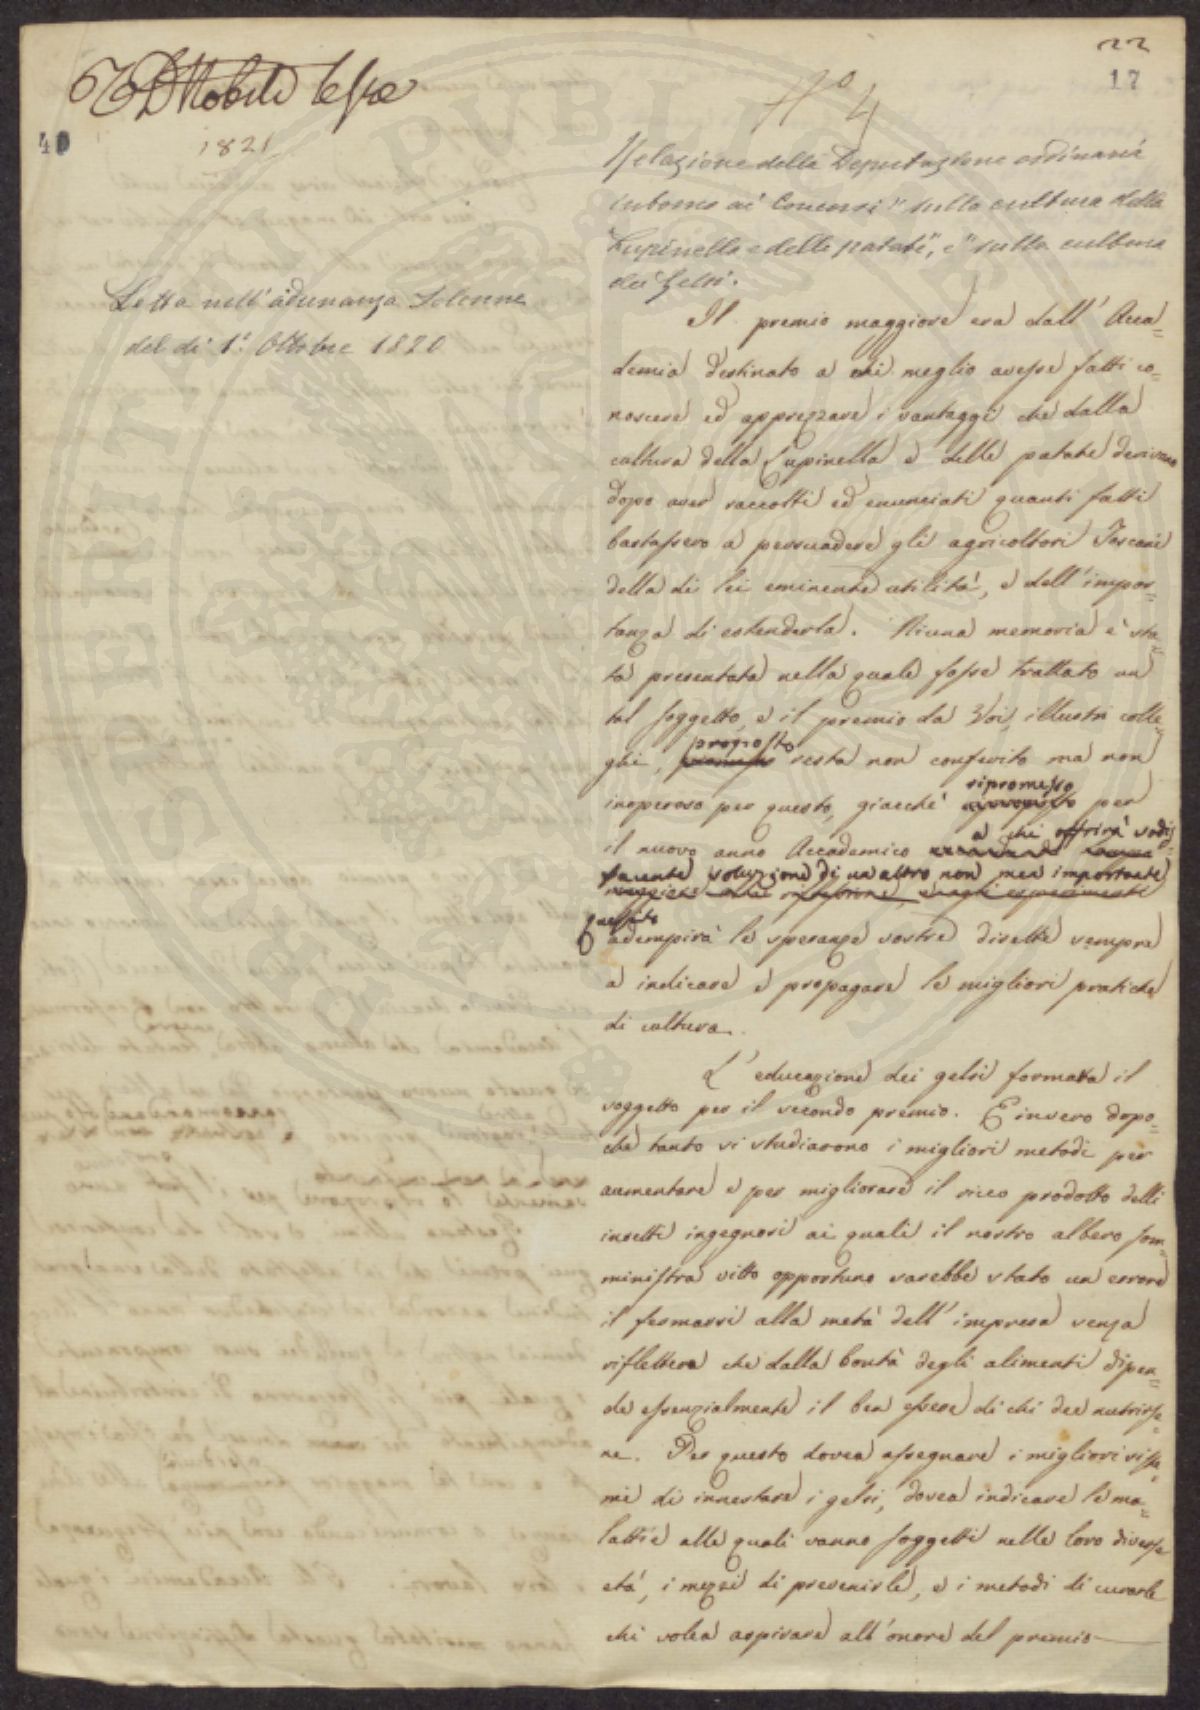 22
17
40
1821
N.o 4
Letta nell'adunanza Solenne
del dì 1.o Ottobre 1820
Relazione della Deputazione ordinaria
intorno ai Concorsi "sulla cultura della
Lupinella e delle patate", e "sulla cultura
dei Gelsi.
Il premio maggiore era dall'Acca=
demia destinato a chi meglio avesse fatti co=
noscere ed apprezzare i vantaggi che dalla
cultura della Lupinella e delle patate derivano
dopo aver raccolti ed enunciati quanti fatti
bastassero a persuadere gli agricoltori Toscani
della di lei eminente utilità, e dell'impor=
tanza di estenderla. Niuna memoria è sta=
ta presentata nella quale fosse trattato un
tal soggetto, e il premio da Voi, illustri colle=
ghi, promesso proposto resta non conferito ma non
inoperoso per questo, giacchè ripromesso per
il nuovo anno Accademico a chi offrirà sodis=
facente soluzione di un altro non men importante
Quesito
adempirà le speranze vostre dirette sempre
a indicare e propagare le migliori pratiche
di cultura.
L'educazione dei gelsi formava il
soggetto per il secondo premio. E invero dopo=
chè tanto si studiarono i migliori metodi per
aumentare e per migliorare il ricco prodotto delli
insetti ingegnosi ai quali il nostro albero som=
ministra vitto opportuno sarebbe stato un errore
il fermarsi alla metà dell'impresa senza
riflettere che dalla bontà degli alimenti dipen=
de essenzialmente il ben essere di chi dee nutrirse=
ne. Per questo dovea assegnare i migliori siste=
mi di innestare i gelsi, dovea indicare le ma=
lattie alle quali vanno soggetti nelle loro diverse
età, i mezzi di prevenirle, e i metodi di curarle
chi volea aspirare all'onore del premio